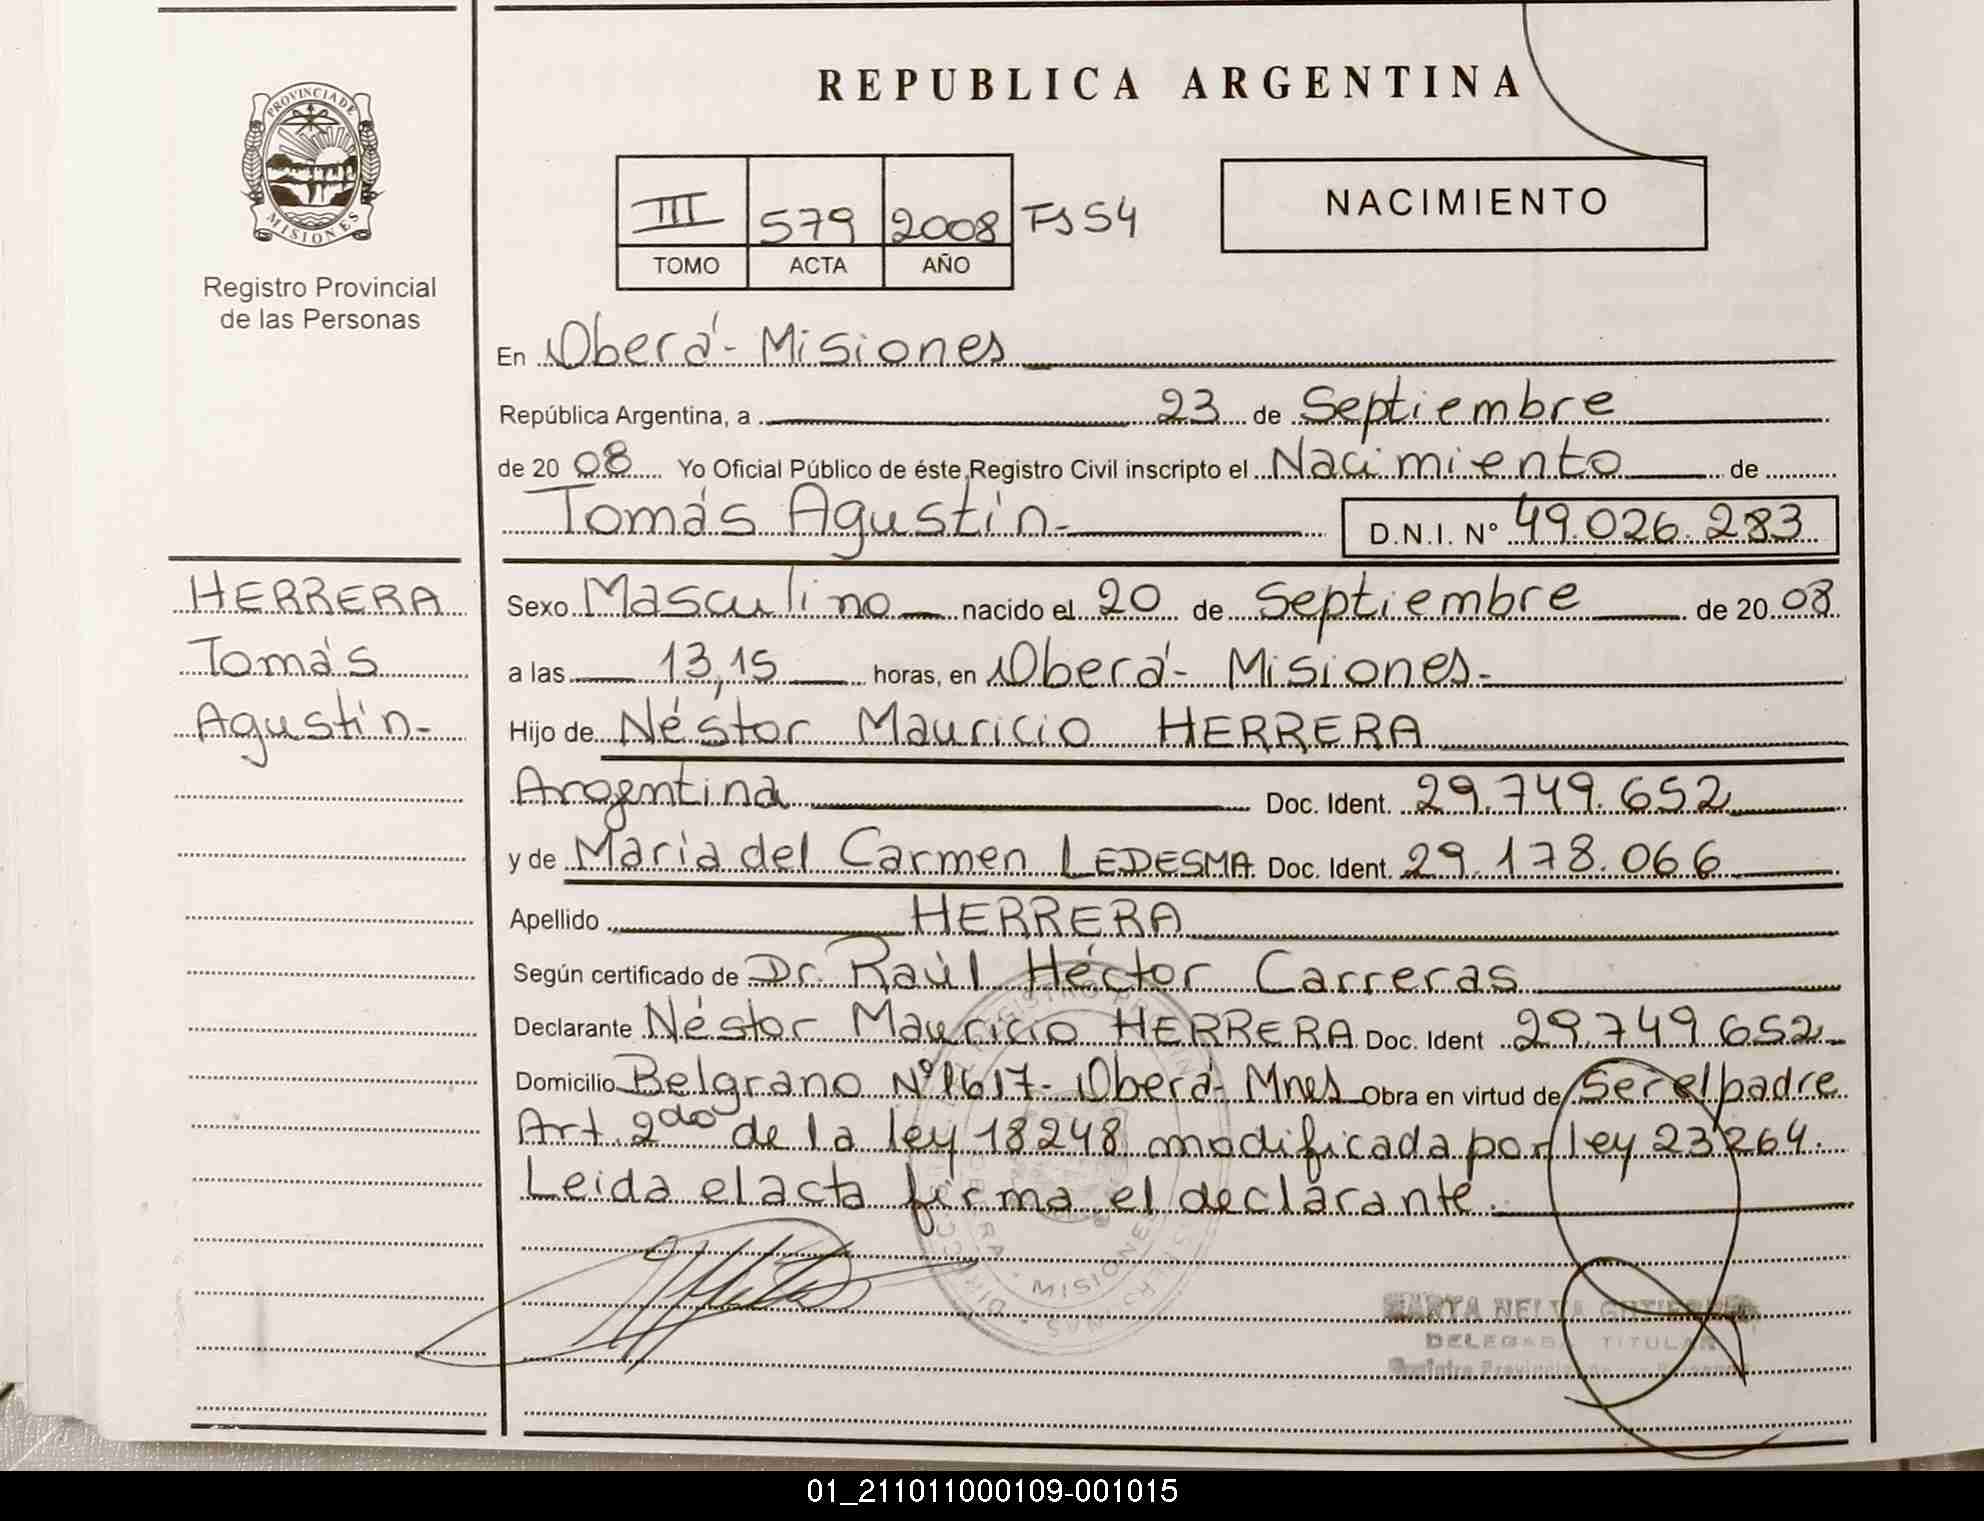 REPUBLICA ARGENTINA
PROVINCIA DE MISIONES
Registro Provincial
de las Personas
III 579 2008 Fs 54
TOMO ACTA AÑO
NACIMIENTO
En Oberá - Misiones
República Argentina, a 23 de Septiembre
de 20 08 Yo Oficial Público de éste Registro Civil inscripto el Nacimiento de
Tomás Agustín.- D.N.I. Nº 49.026.283
HERRERA
Tomás
Agustín-
Sexo Masculino nacido el 20 de Septiembre de 20 08
a las 13,15 horas, en Oberá - Misiones.-
Hijo de Néstor Mauricio HERRERA
Argentina Doc. Ident. 29.749.652
y de María del Carmen LEDESMA Doc. Ident. 29.178.066
Apellido HERRERA
Según certificado de Dr. Raúl Héctor Carreras
Declarante Néstor Mauricio HERRERA Doc. Ident 29.749.652-
Domicilio Belgrano Nº 1617- Oberá - Mnes Obra en virtud de Ser el padre
Art. 2do de la ley 18248 modificada por ley 23264.
Leida el acta firma el declarante.
MISIONES
DELEGADA TITULAR
01_211011000109-001015